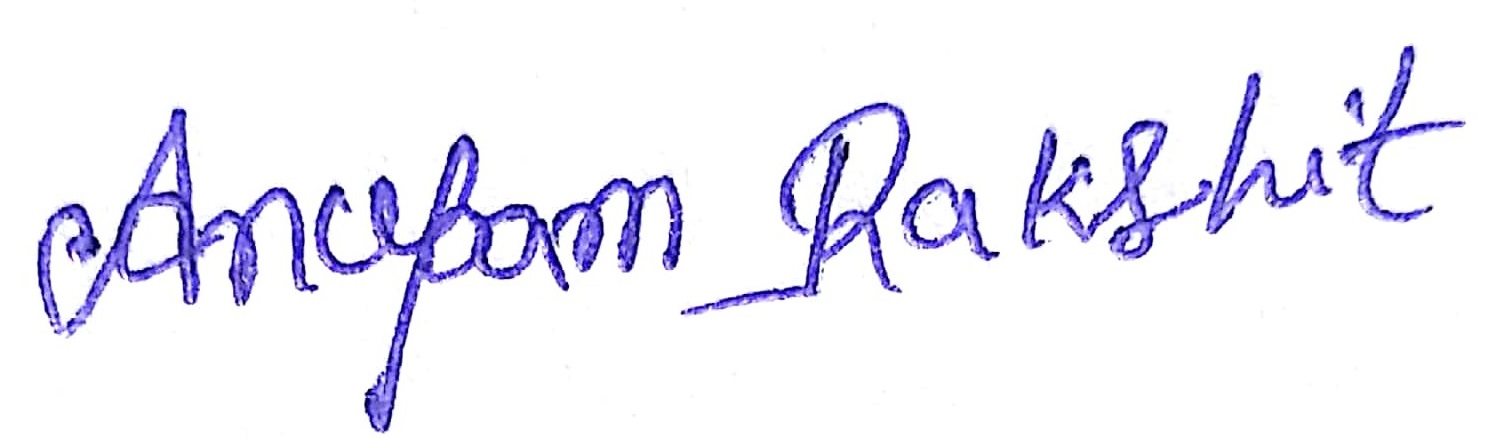 Anupam Rakshit